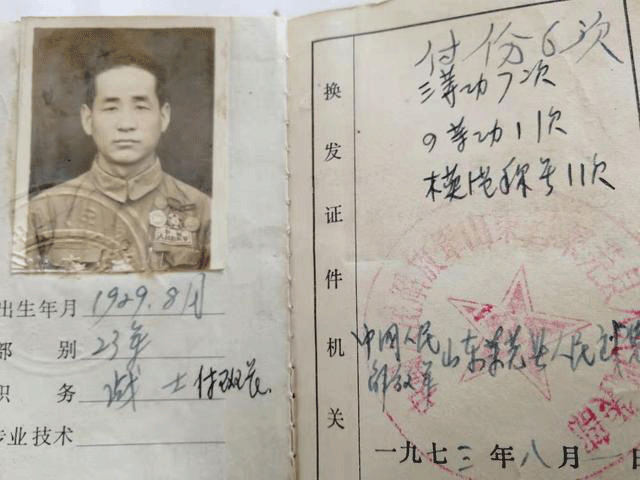 出生年月 1929.8月
部 别 23年
职 务 战士付班长
专业技术
付份6次
三等功7次
等功11次
模范称号11次
换发证件机关
中国人民
解放军
山东莱芜县人民
一九七三年八月一日